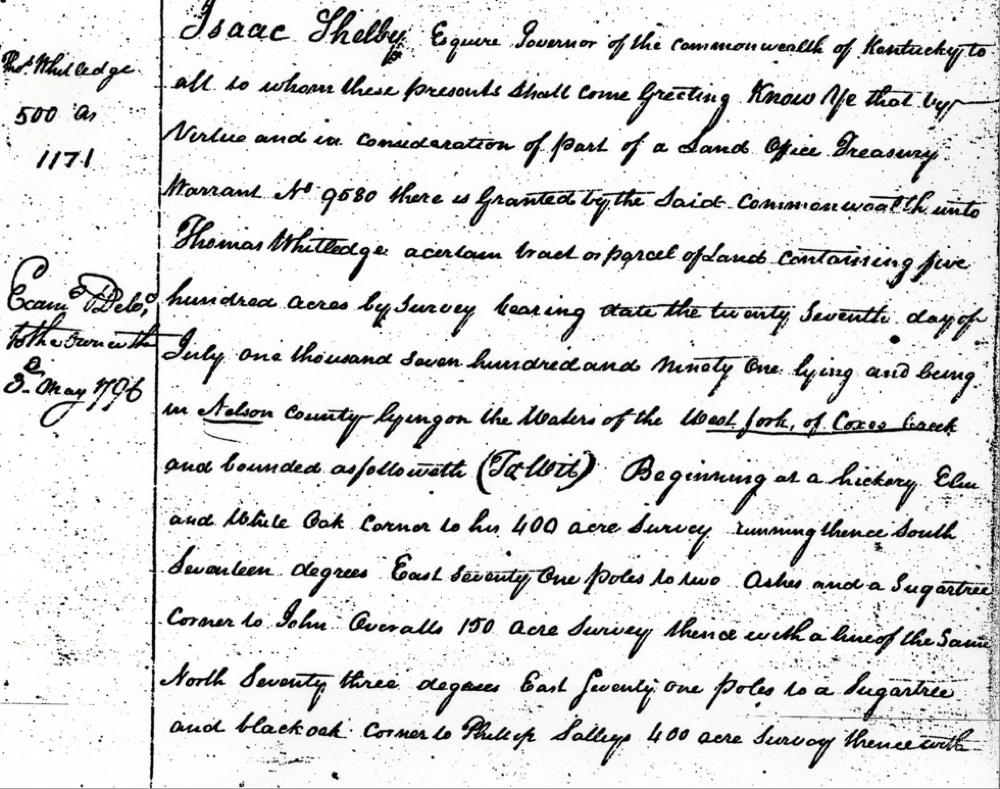 Thos Whitledge
500 as
1171
Examd & Deld
to the owner the
3d May 1796
Isaac Shelby Esquire Governor of the commonwealth of Kentucky to
all to whom these presents Shall come Greeting Know Ye that by
Virtue and in consideration of part of a Land Office Treasury
Warrant No 9580 there is Granted by the Said Commonwealth unto
Thomas Whitledge a certain tract or parcel of Land containing five
hundred acres by Survey bearing date the twenty Seventh day of
July one thousand Seven hundred and Ninety One lying and being
in Nelson County lying on the Waters of the West fork, of Coxes Creek
and bounded as followeth (To Wit) Beginning at a hickory Elm
and White Oak Corner to his 400 acre Survey running thence South
Seventeen degrees East Seventy One poles to two Ashes and a Sugartree
Corner to John Overalls 150 acre Survey thence with a line of the Same
North Seventy three degrees East Seventy one poles to a Sugartree
and black oak Corner to Phillip 400 acre Survey thence with